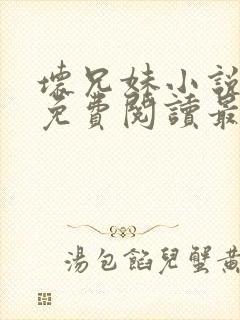 壞兄妹小說
免費閱讀最
湯包餡兒蟹黃